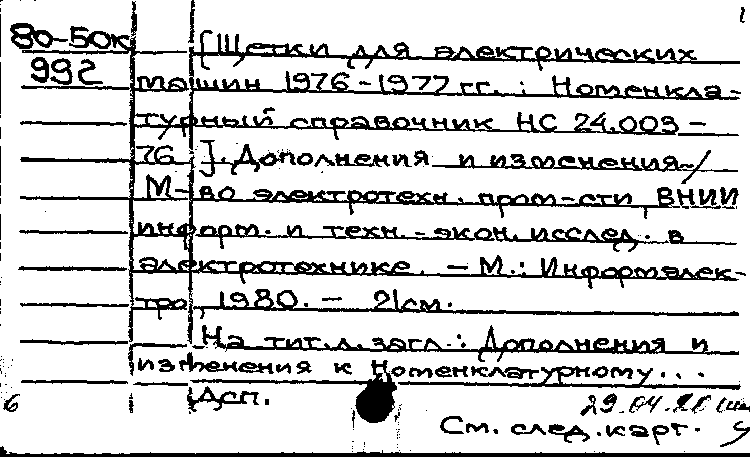 1
80-50к [Щетки для электрических
992 машин 1976-1977 гг. : Номенкла-
турный справочник НС 24.009-
76]. Дополнения и изменения /
М-во электротехн. пром-сти, ВНИИ
информ. и техн.-экон. исслед. в
электротехнике. - М.: Информэлек-
тро, 1980. - 21см.
На тит. л. загл.: Дополнения и
изменения к Номенклатурному...
Дсп.
6 29.04.80
См. след. карт.